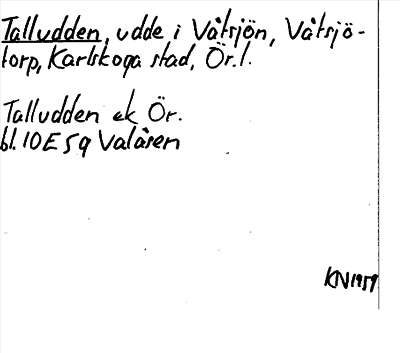 Talludden, udde i Våtsjön, Våtsjö-
torp, Karlskoga stad, Ör. l.
Talludden ek Ör.
bl. 10E 5q Valåsen
KN 1959